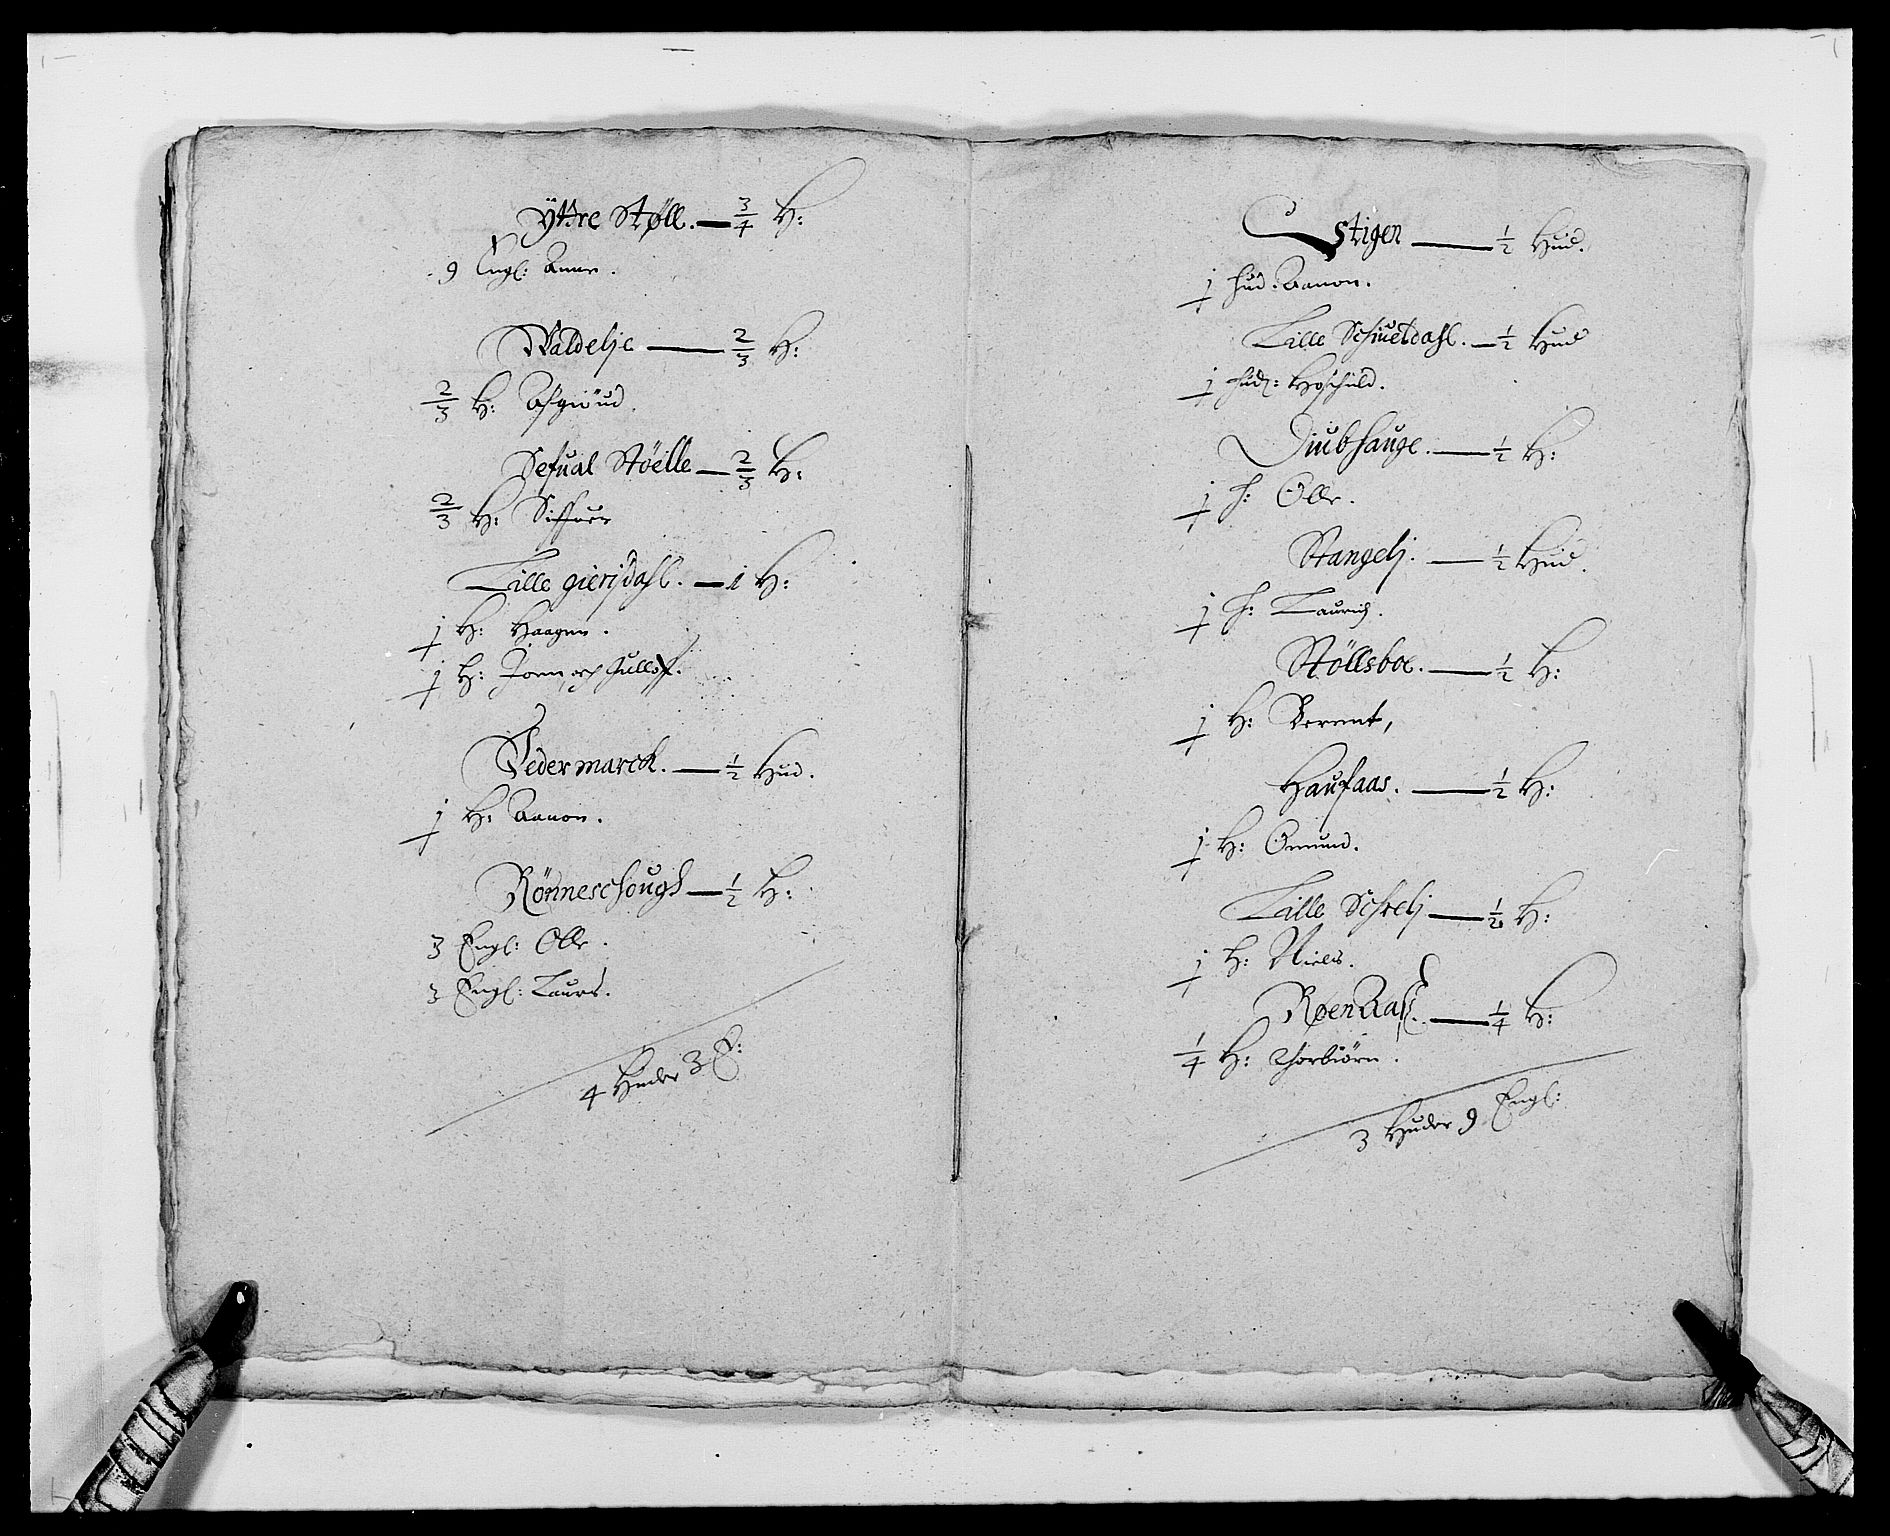 Ÿttre Støll. — 3/4 H:
9 Engl: Anne.
Waldelje — 2/3 H:
2/3 H: Asgiöud.
Sefual Stöelle — 2/3 H:
2/3 H: Siffuer
Lille gierisdahl. — 1 H:
½ H: Haagen.
½ H: Joen, och Gullof.
Vedermarck. — ½ Hud.
½ H: Aanon.
Rönneschough — ½ H:
3 Engl: Olle.
3 Engl: Laurs.
4 Huder 3 E:
Stigen — ½ Hud.
½ hud: Aanon.
Lille Schiuetdahl. — ½ Hud
½ hud: Hoschuld.
Diubhauge. — ½ H:
½ h: Olle.
Stangelj. — ½ Hud.
½ h: Laurich.
Stöllsboe. — ½ H:
½ H: Berent,
Haufaas. — ½ H:
½ H: Omund.
Lille Schrelj — ½ H:
½ H: Niels.
RøenAas. — 1/4 H:
1/4 H: Thorbiörn.
3 Huder 9 Engl: